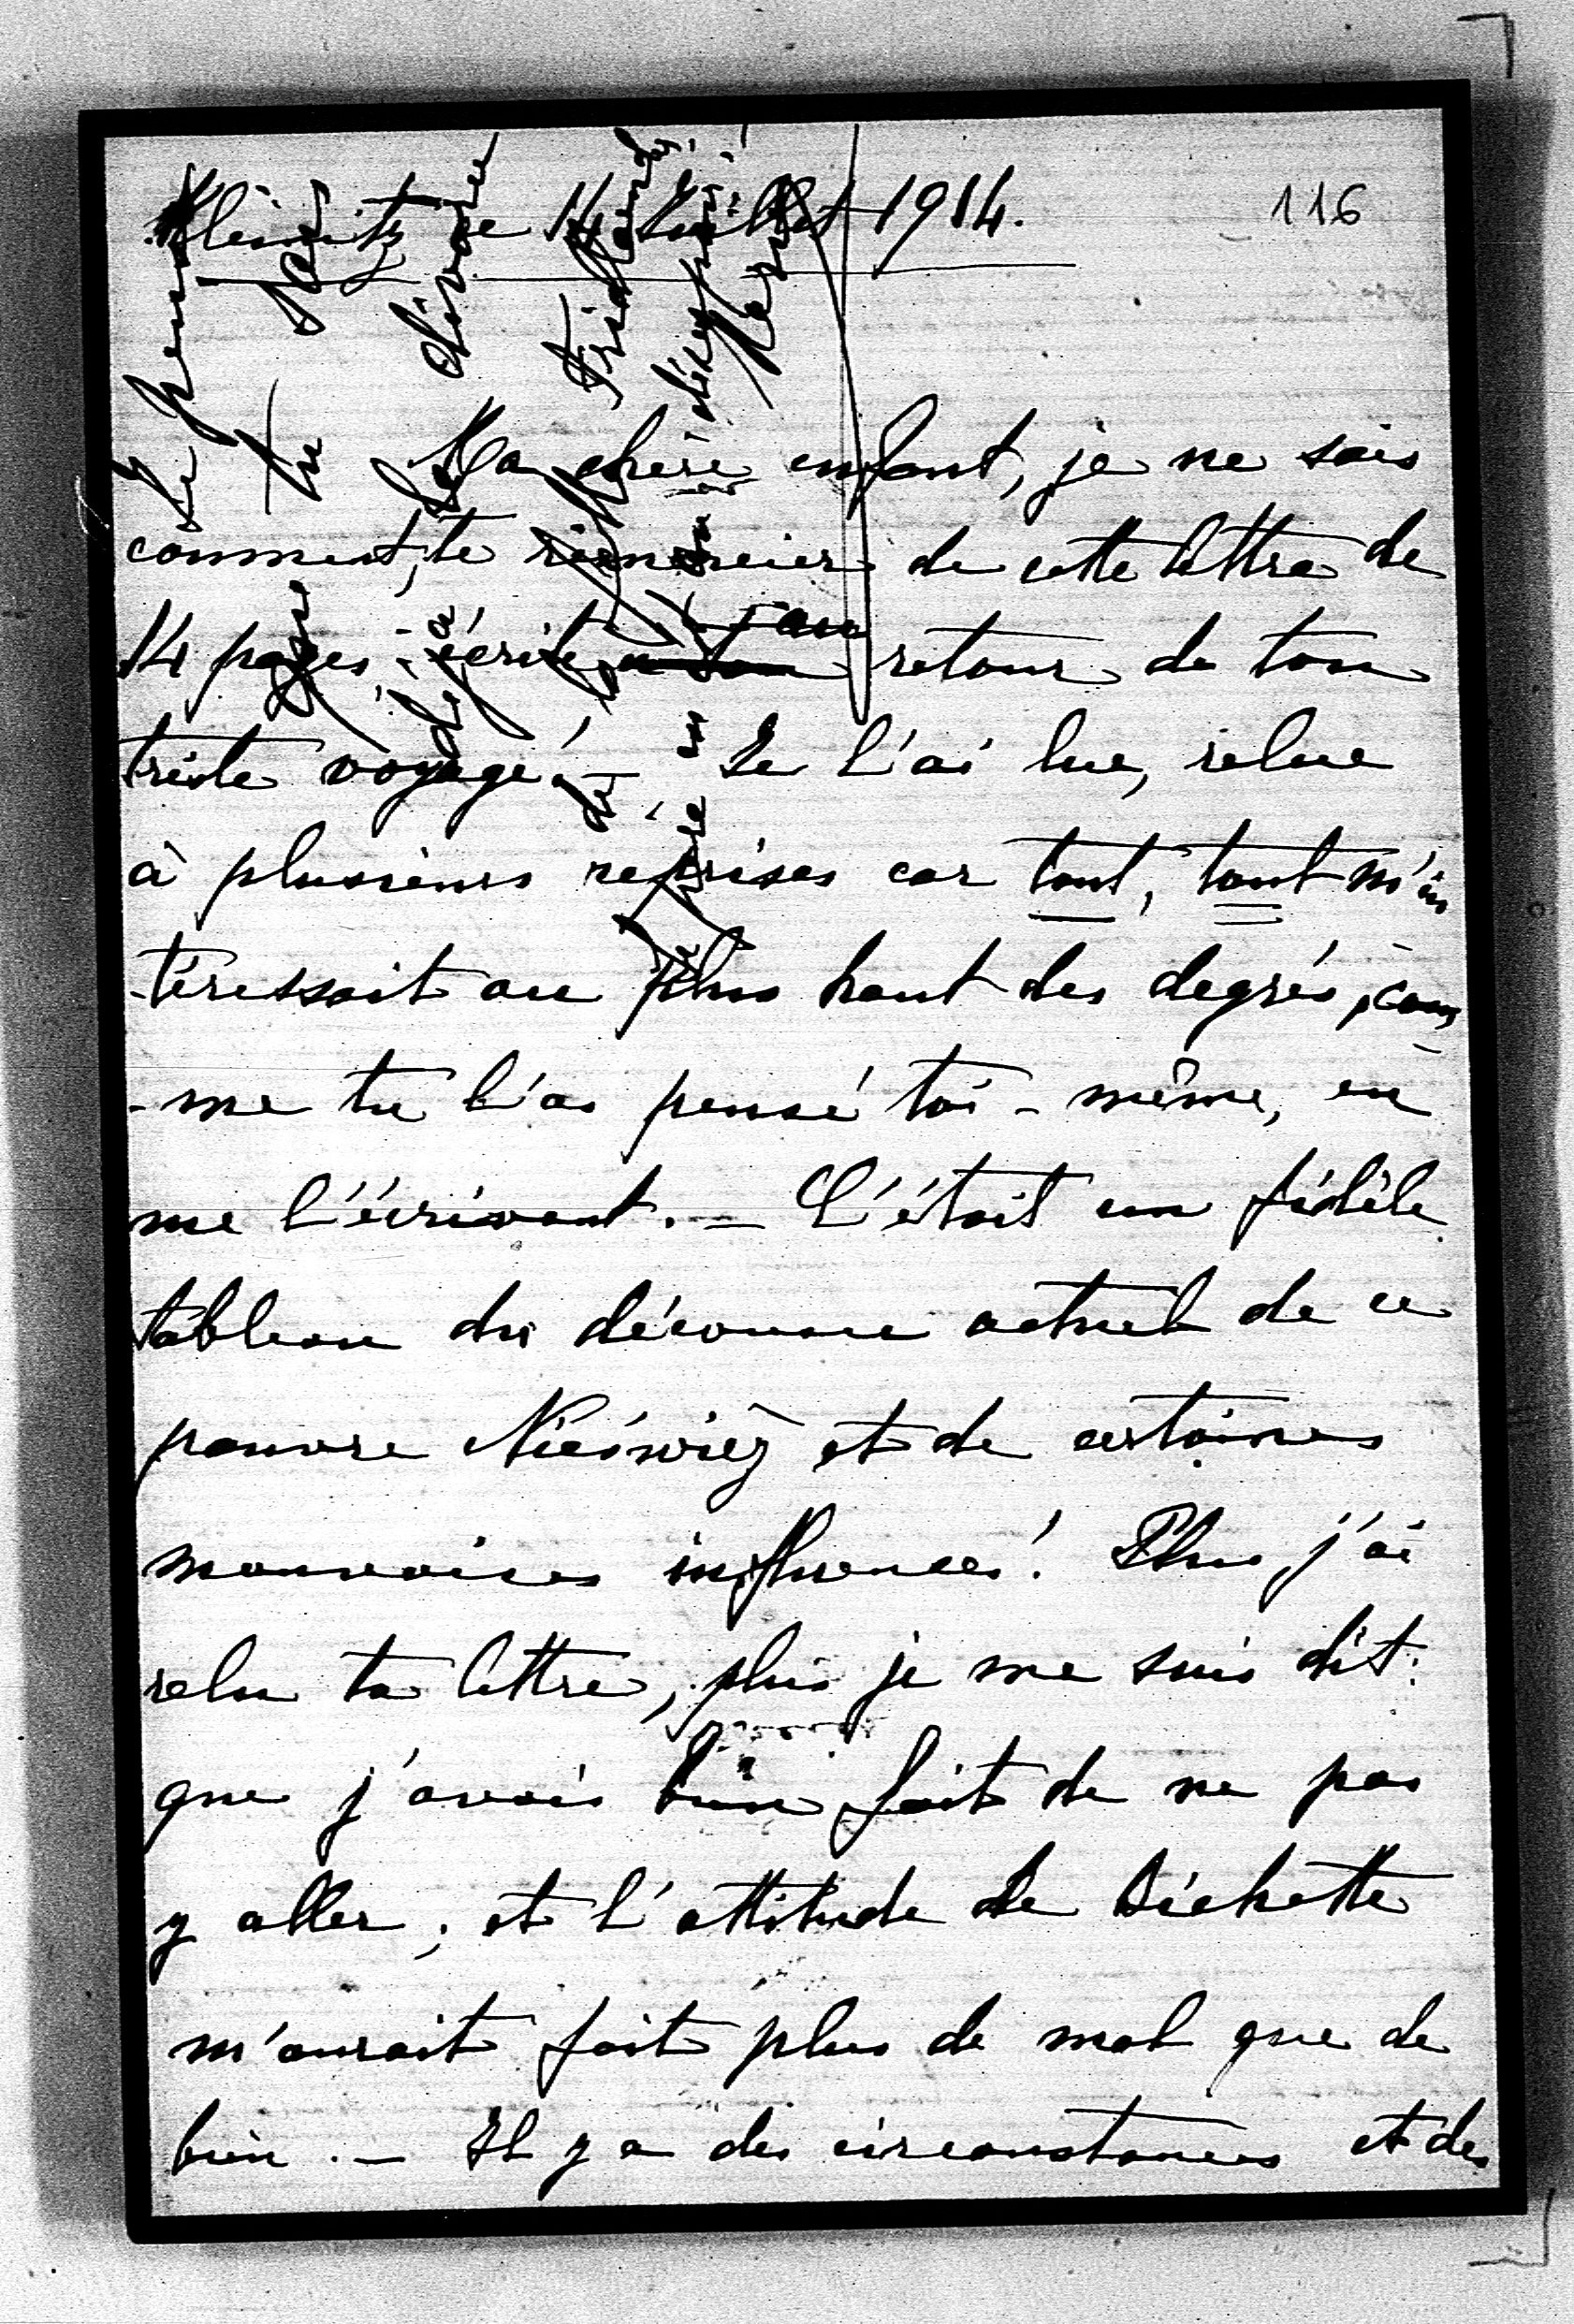 116
le 14 Juillet 1914.
Ma chère enfant, je ne sais
comment, te remercier de cette lettre de
14 pages écrite au retour de ton
triste voyage. — Je l'ai lue, relue
à plusieurs reprises car tout, tout m'in
-téressait au plus haut des degrés, com
-me tu l'as pensé toi-même, en
me l'écrivant. — C'était un fidèle
tableau du décousu actuel de ce
pauvre Nieśwież et de certaines
mauvaises influences! Plus j'ai
relu ta lettre, plus je me suis dit:
que j'avais bien fait de ne pas
y aller; et l'attitude de Bichette
m'aurait fait plus de mal que de
bien. — Il y a des circonstances et des